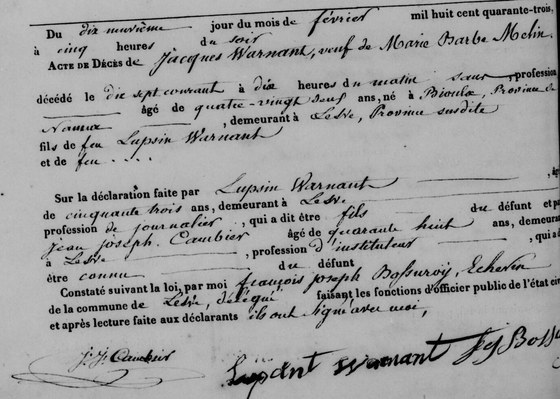 Du dix neuvième jour du mois de février mil huit cent quarante-trois,
à cinq heures du soir
ACTE DE DÉCÈS de Jacques Warnant, veuf de Marie Barbe Melin.
décédé le dix sept courant à dix heures du matin sans profession
âgé de quatre-vingt neuf ans, né à Bioulx, Province de
Namur, demeurant à Lesve, Province susdite
fils de feu Lupsin Warnant
et de feu . . . .
Sur la déclaration faite par Lupsin Warnant, âgé
de cinquante trois ans, demeurant à Lesve
profession de journalier, qui a dit être fils du défunt et par
Jean Joseph Cambier âgé de quarante huit ans, demeurant
à Lesve, profession d'instituteur, qui a
être connu du défunt
Constaté suivant la loi, par moi françois Joseph Bossuroy, Echevin
de la commune de Lesve, délégué faisant les fonctions d'officier public de l'état civ
et après lecture faite aux déclarants ils ont signé avec moi,
J. J. Cambier Lupsint Warnant F J Bossu